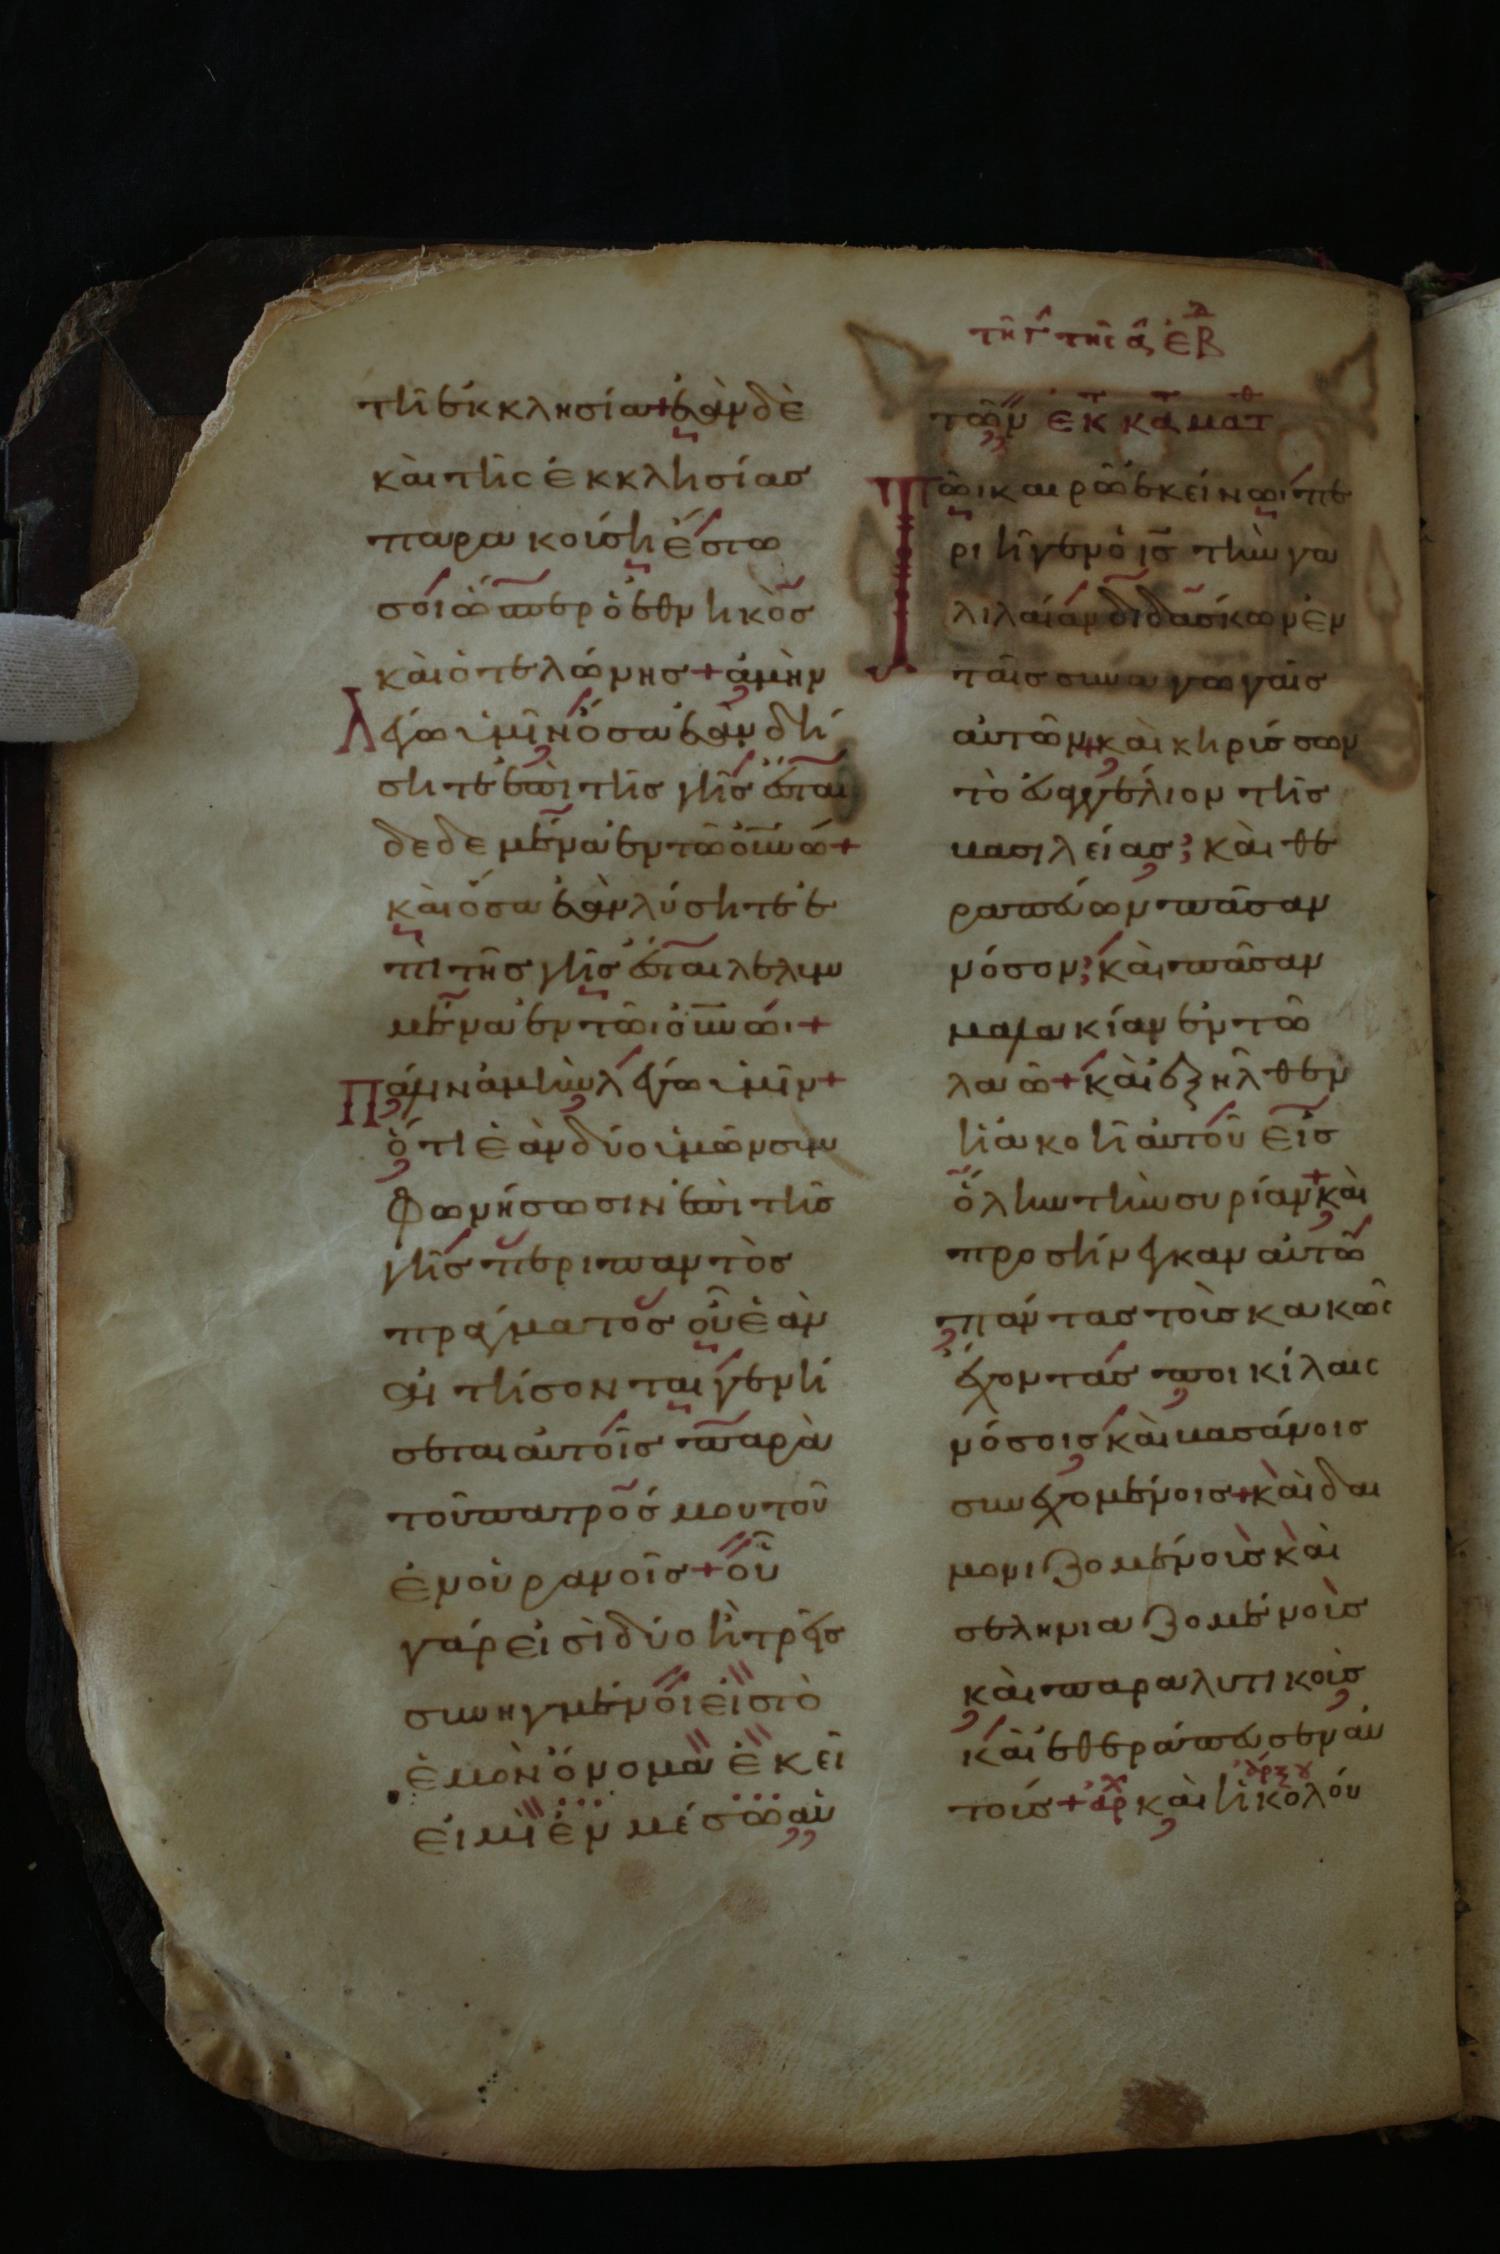 τῆ ἐκκλησία + ἐὰν δὲ
καὶ τῆς ἐκκλησίας
παρακούση ἔστω
σοι ὥσπερ ὁ ἐθνηκὸς
καὶ ὁ τελώνης + ἀμὴν
λέγω ὑμῖν ὅσα ἐὰν δή
σητε ἐπὶ τῆς γῆς ἔσται
δεδεμένα ἐν τῶ οὐνῶ +
καὶ ὅσα ἐὰν λύσητε ἐ
πὶ τῆς γῆς ἔσται λελυ
μένα ἐν τῶι οὐνῶι +
Πάλιν ἀμὴν λέγω ὑμῖν +
ὅτι ἐὰν δύο ὑμῶν συμ
φωνήσωσιν ἐπὶ τῆς
γῆς περὶ παντὸς
πράγματος οὗ ἐὰν
αἰτήσονται γενή
σεται αὐτοῖς παρὰ
τοῦ πατρός μου τοῦ
ἐν οὐρανοῖς + οὗ
γάρ εἰσὶ δύο ἢ τρεῖς
συνηγμένοι εἰς τὸ
ἐμὸν ὄνομα ἐκεῖ
εἰμὶ ἐν μέσω αὐ
τῆ γ τῆς α ἑβδ
τῶν ἐκ κατ ματθ
Τῶι καιρῶ ἐκείνωι πε
ριῆγεν ὁ ις τὴν γα
λιλαίαν διδάσκων ἐν
ταῖς συναγωγαῖς
αὐτῶν + καὶ κηρύσσων
τὸ εὐαγγέλιον τῆς
βασιλείας καὶ θε
ραπεύων πᾶσαν
νόσον καὶ πᾶσαν
μαλακίαν ἐν τῶ
λαῶ + καὶ ἐξῆλθεν
ἡ ἀκοὴ αὐτοῦ εἰς
ὅλην τὴν συρίαν + καὶ
προσήνεγκαν αὐτῶ
πάντας τοὺς κακῶς
ἔχοντας ποικίλαις
νόσοις καὶ βασάνοις
συνεχομένοις + καὶ δαι
μονιζομένοὺς καὶ
σεληνιαζομένοὺς
καὶ παραλυτικοὺς
καὶ ἐθεράπευσεν αὐ
τούς + ἀρχ καὶ ἠκολού